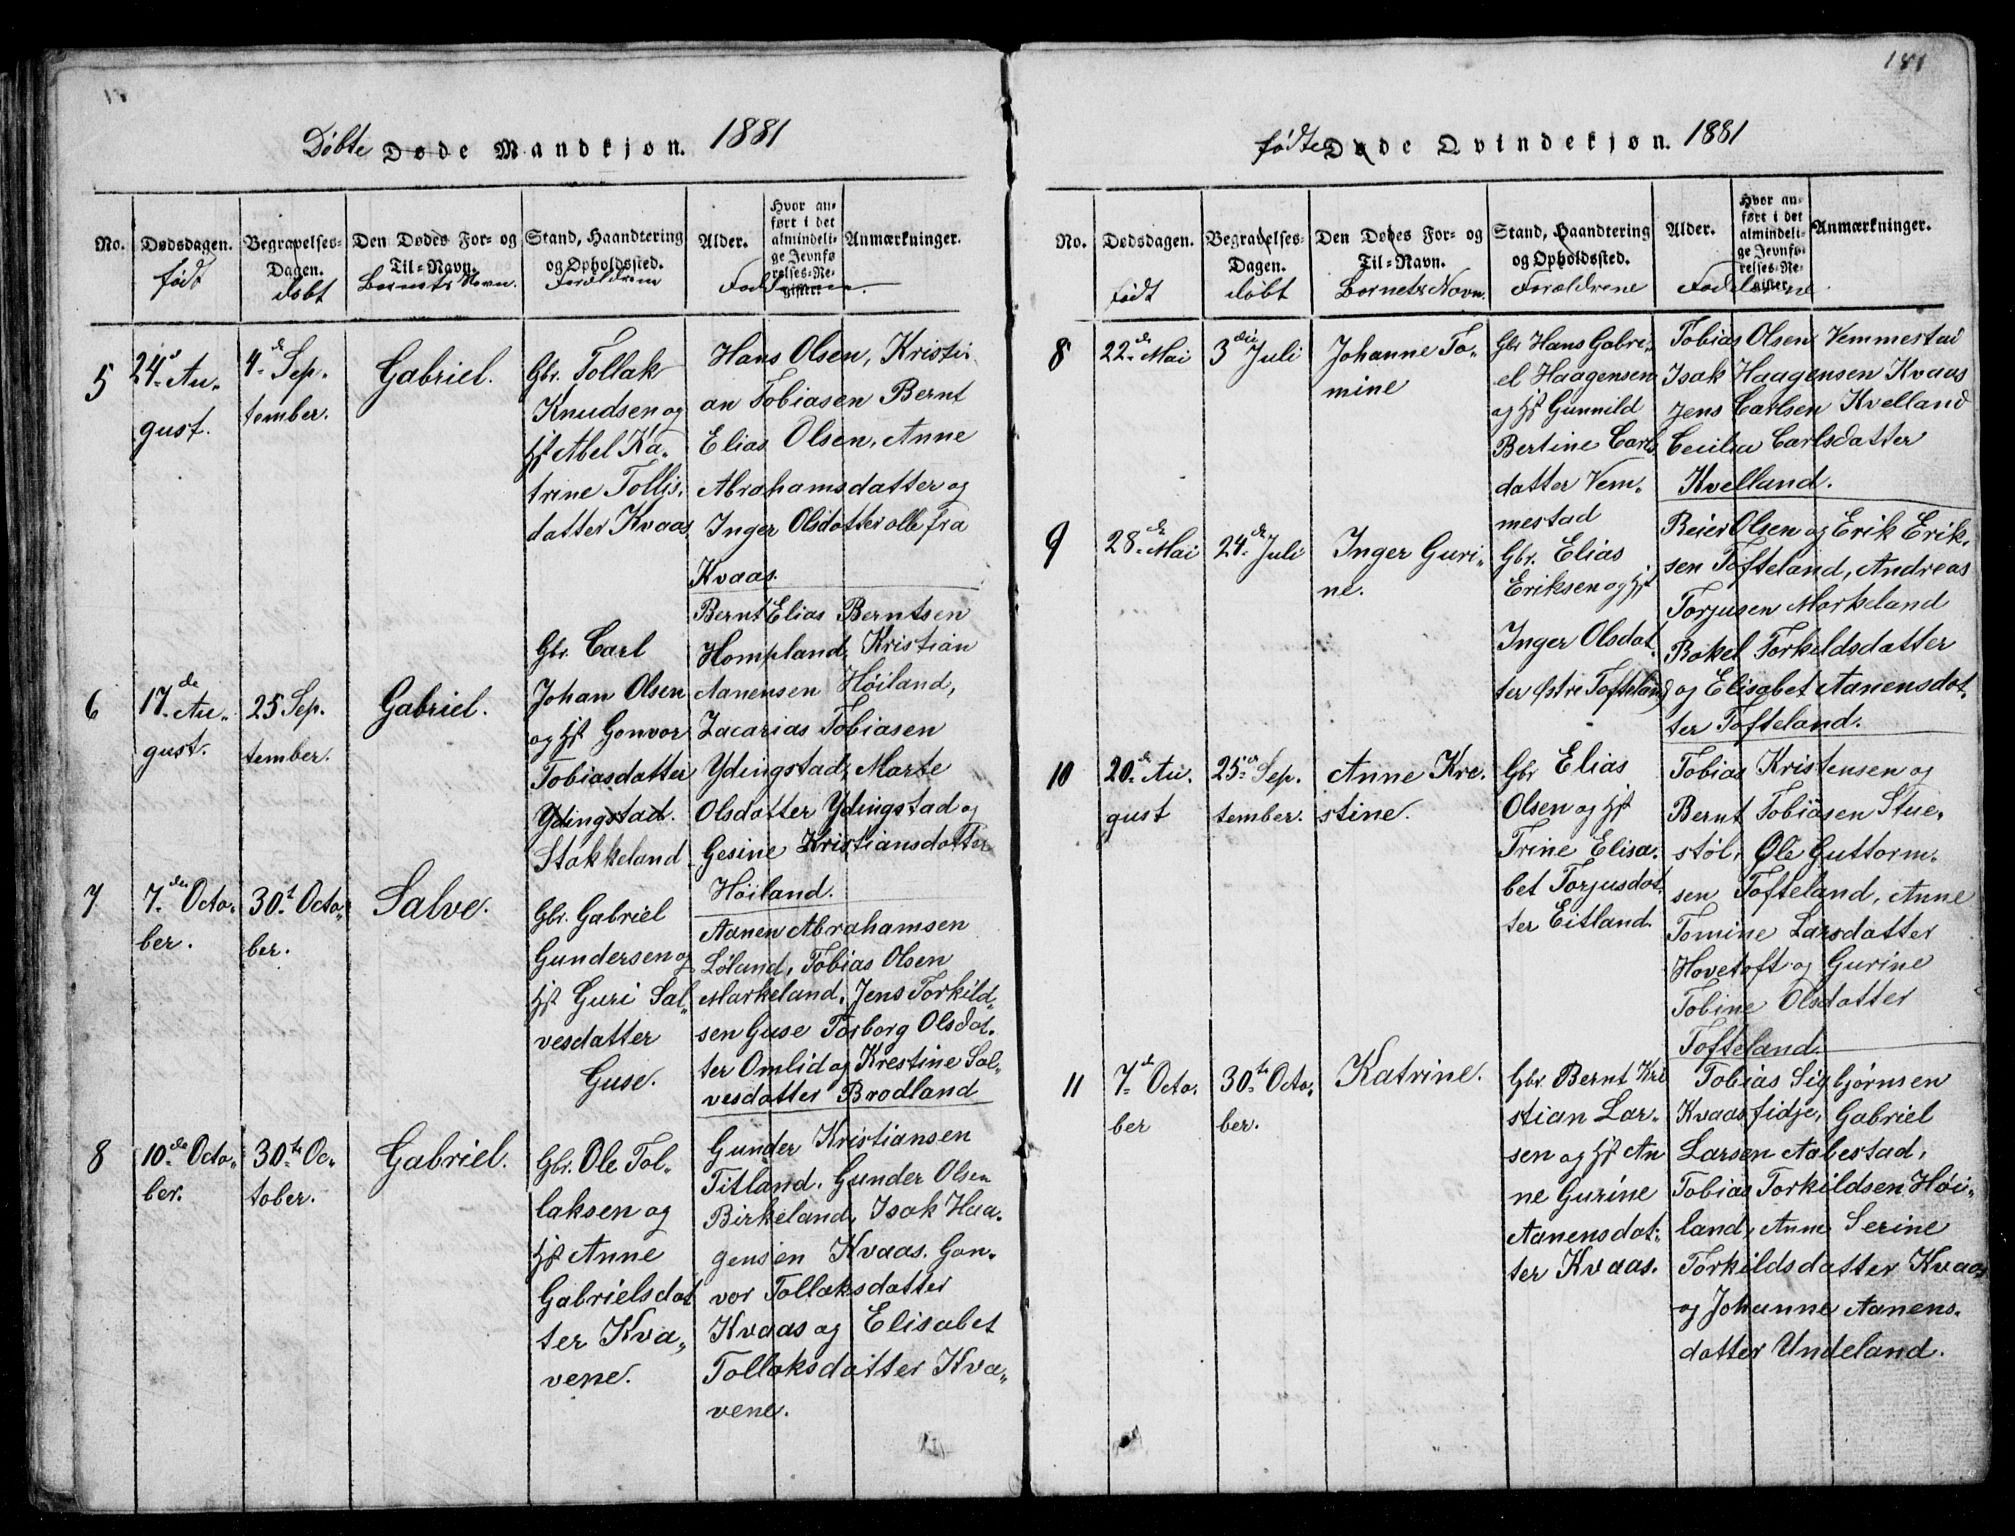 181
Döbte Døde Mandkjøn. 1881
No.
Dødsdagen.
født
Begravelses-
Dagen.
døbt
Den Dødes For- og
Til-Navn.
Barnets Navn.
Stand, Haandtering
og Opholdssted.
Forældrene
Alder.
Hvor an-
ført i det
almindeli-
ge Jevnfø
relses-Re-
gister
Anmærkninger.
Fadderne.
5
24de Au-
gust.
4de Sep-
tember.
Gabriel.
Gbr. Tollak
Knudsen og
Hst Abel Ka-
trine Tollis-
datter Kvaas
Hans Olsen, Kristi-
an Tobiasen Bernt
Elias Olsen, Anne
Abrahamsdatter og
Inger Olsdatter alle fra
Kvaas.
6
17de Au-
gust.
25 Sep-
tember.
Gabriel.
Gbr. Carl
Johan Olsen
og Hst Gonvor
Tobiasdatter
Ydingstad.
Stakkeland
Bernt Elias Berntsen
Hompland, Kristian
Aanensen Høiland,
Zacarias Tobiasen
Ydingstad, Marte
Olsdatter Ydingstad og
Gesine Kristiansdatter
Høiland.
7
7de Octo-
ber.
30te Octo-
ber.
Salve.
Gbr. Gabriel
Gundersen og
Hst Guri Sal-
vesdatter
Guse.
Aanen Abrahamsen
Løland, Tobias Olsen
Markeland, Jens Torkild-
sen Guse Torborg Olsdat-
ter Omlid og Krestine Sal-
vesdatter Brodland
8
10de Octo-
ber.
30te Oc-
tober.
Gabriel.
Gbr. Ole Tol-
laksen og
Hst Anne
Gabrielsdat
ter Kva-
vene.
Gunder Kristiansen
Titland. Gunder Olsen
Birkeland, Isak Haa-
gensen Kvaas. Gon-
vor Tollaksdatter
Kvaas og Elisabet
Tollaksdatter Kva-
vene.
fødte Døde Qvindekjøn. 1881
No.
Dødsdagen.
født
Begravelses-
Dagen.
døbt
Den Dødes For- og
Til-Navn.
Barnets Navn.
Stand, Haandtering
og Opholdssted.
Forældrene
Alder.
Hvor an-
ført i det
almindeli-
ge Jevnfø
relses-Re-
gister
Anmærkninger.
Fadderne
8
22de Mai
3die Juli
Johanne To-
mine
Gbr Hans Gabri-
el Haagensen
og Hst Gunnild
Bertine Carls
datter Vem-
mestad
Tobias Olsen Vemmestad
Isak Haagensen Kvaas
Jens Carlsen Kvelland
Cecilia Carlsdatter
Kvelland.
9
28de Mai
24de Juli
Inger Guri-
ne.
Gbr. Elias
Eriksen og Hst
Inger Olsdat-
ter Østre Tofteland
Reier Olsen og Erik Erik-
sen Tofteland, Andreas
Torjusen Markeland
Rakel Torkildsdatter
og Elisabet Aanensdat-
ter Tofteland.
10
20de Au-
gust
25de Sep-
tember.
Anne Kre-
stine.
Gbr Elias
Olsen og Hst
Trine Elisa-
bet Torjusdat
ter Eitland.
Tobias Kristensen og
Bernt Tobiasen Stue-
støl, Ole Guttorm-
sen Tofteland, Anne
Tomine Larsdatter
Hovetoft og Gurine
Tobine Olsdatter
Tofteland.
11
7de Octo-
ber
30te Octo-
ber.
Katrine.
Gbr. Bernt Kri
stian Lar-
sen og Hst An
ne Gurine
Aanensdat-
ter Kvaas.
Tobias Sigbjørnsen
Kvaasfidje, Gabriel
Larsen Aabestad,
Tobias Torkildsen Høi-
land, Anne Serine
Torkildsdatter Kvaas
og Johanne Aanens-
datter Undeland.